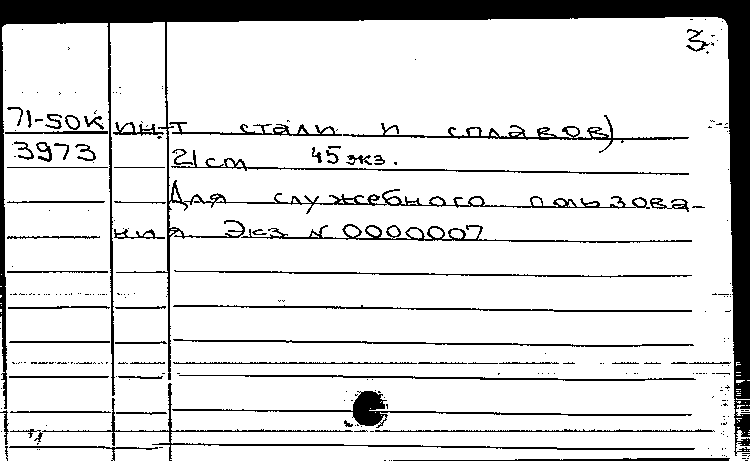 3.
71-50к ин-т стали и сплавов).
3973 21 cm 45 экз.
Для служебного пользова-
ния Экз N 0000007